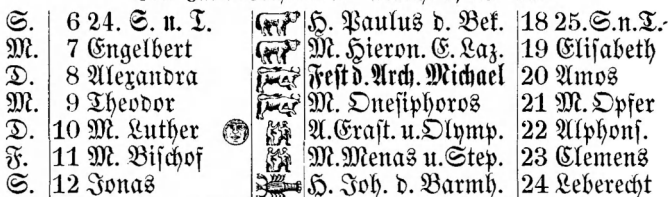 S. 6 24. S. n. T. H. Paulus d. Bek. 18 25. S. n. T.
M. 7 Engelbert M. Hieron. E. Laz. 19 Elisabeth
D. 8 Alexandra Fest d. Arch. Michael 20 Amos
M. 9 Theodor M. Onesiphoros 21 M. Opfer
D. 10 M. Luther A. Erast. u. Olymp. 22 Alphons.
F. 11 M. Bischof M. Menas u. Step. 23 Clemens
S. 12 Jonas H. Joh. d. Barmh. 24 Leberecht